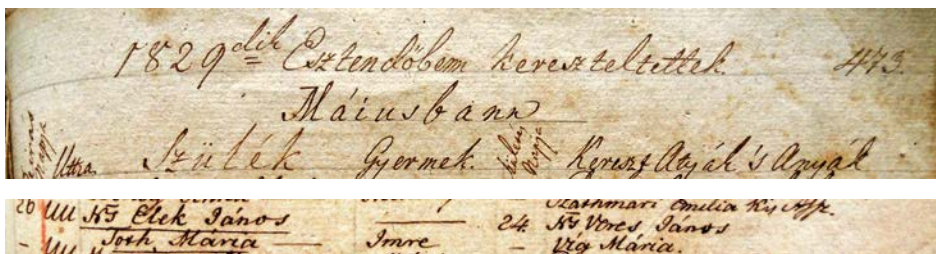 1829dik Esztendőbenn kereszteltettek. 473.
Májusbann
Uttza. Szülék Gyermek. Születés Napja Kereszt Atyák 's Anyák
26 Szathmári Emilia Kis Assz.
UU Ns Elek János 24 Ns Veres János
- UU Toth Mária Imre - Víg Mária.